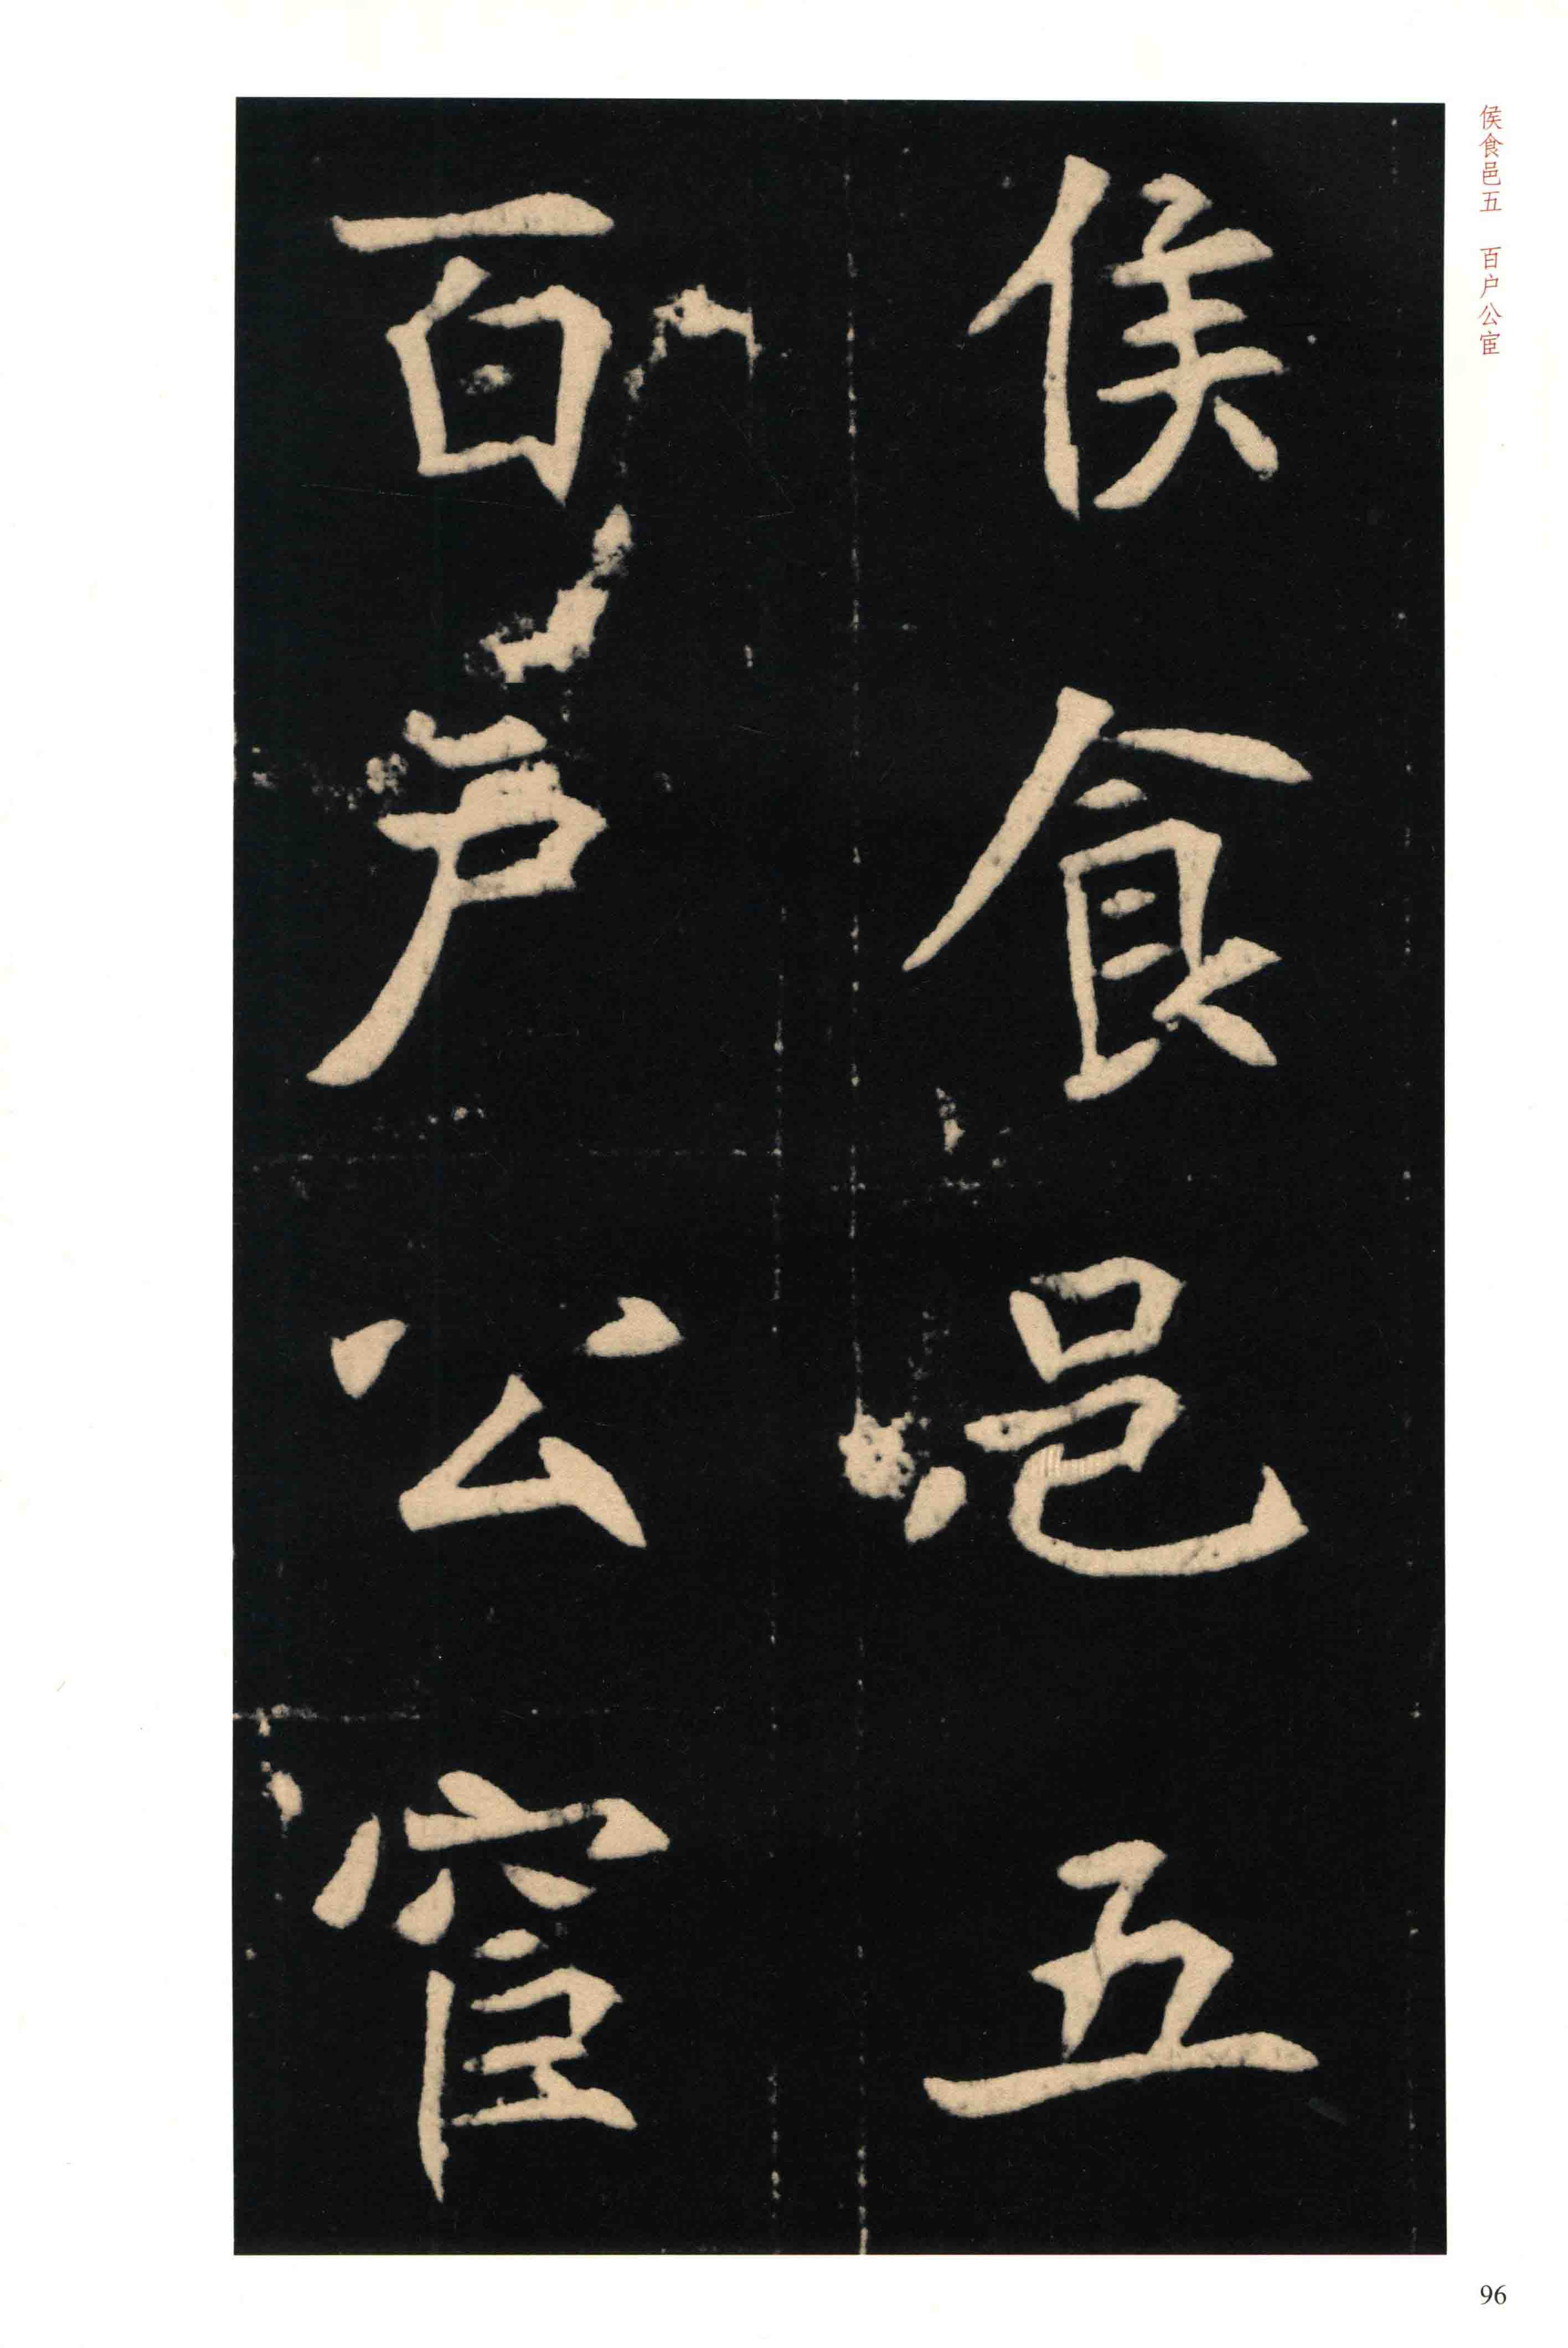 侯食邑五　百户公宦
侯食邑五
百户公宦
96